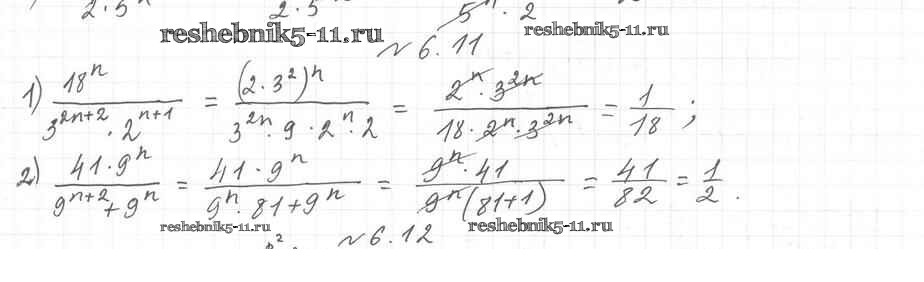 2·5ⁿ 2·5 5ⁿ·2
reshebnik5-11.ru reshebnik5-11.ru
№ 6.11
1) 18ⁿ / (3²ⁿ⁺² · 2ⁿ⁺¹) = (2·3²)ⁿ / (3²ⁿ · 9 · 2ⁿ · 2) = 2ⁿ · 3²ⁿ / (18 · 2ⁿ · 3²ⁿ) = 1/18 ;
2) 41·9ⁿ / (9ⁿ⁺² + 9ⁿ) = 41·9ⁿ / (9ⁿ · 81 + 9ⁿ) = 9ⁿ · 41 / (9ⁿ(81+1)) = 41/82 = 1/2 .
reshebnik5-11.ru reshebnik5-11.ru
№ 6.12